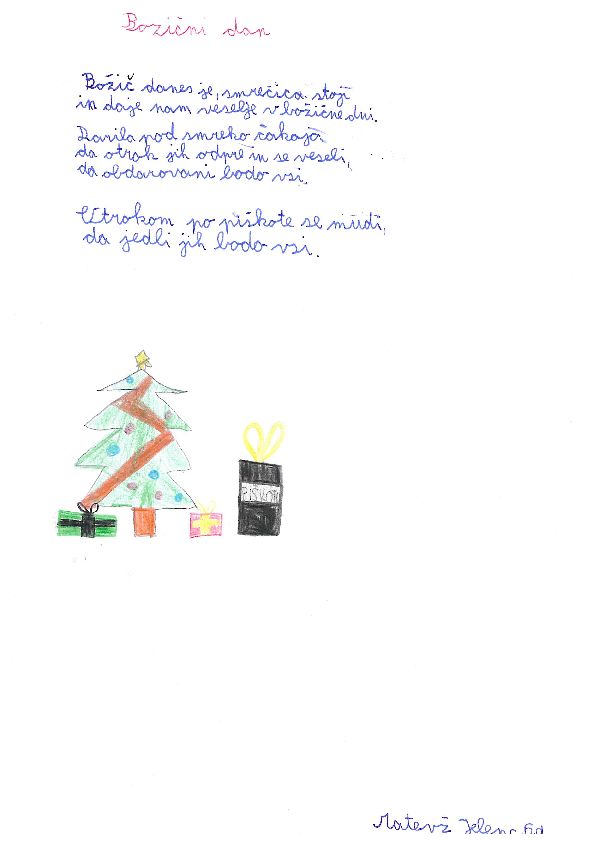 Božični dan
Božič danes je, smrečica stoji
in daje nam veselje v božične dni.
Darila pod smreko čakajo
da otrok jih odpre in se veseli,
da obdarovani bodo vsi.
Otrokom po piškote se mudi,
da jedli jih bodo vsi.
PIŠKOTI
Matevž Klenc 6.d